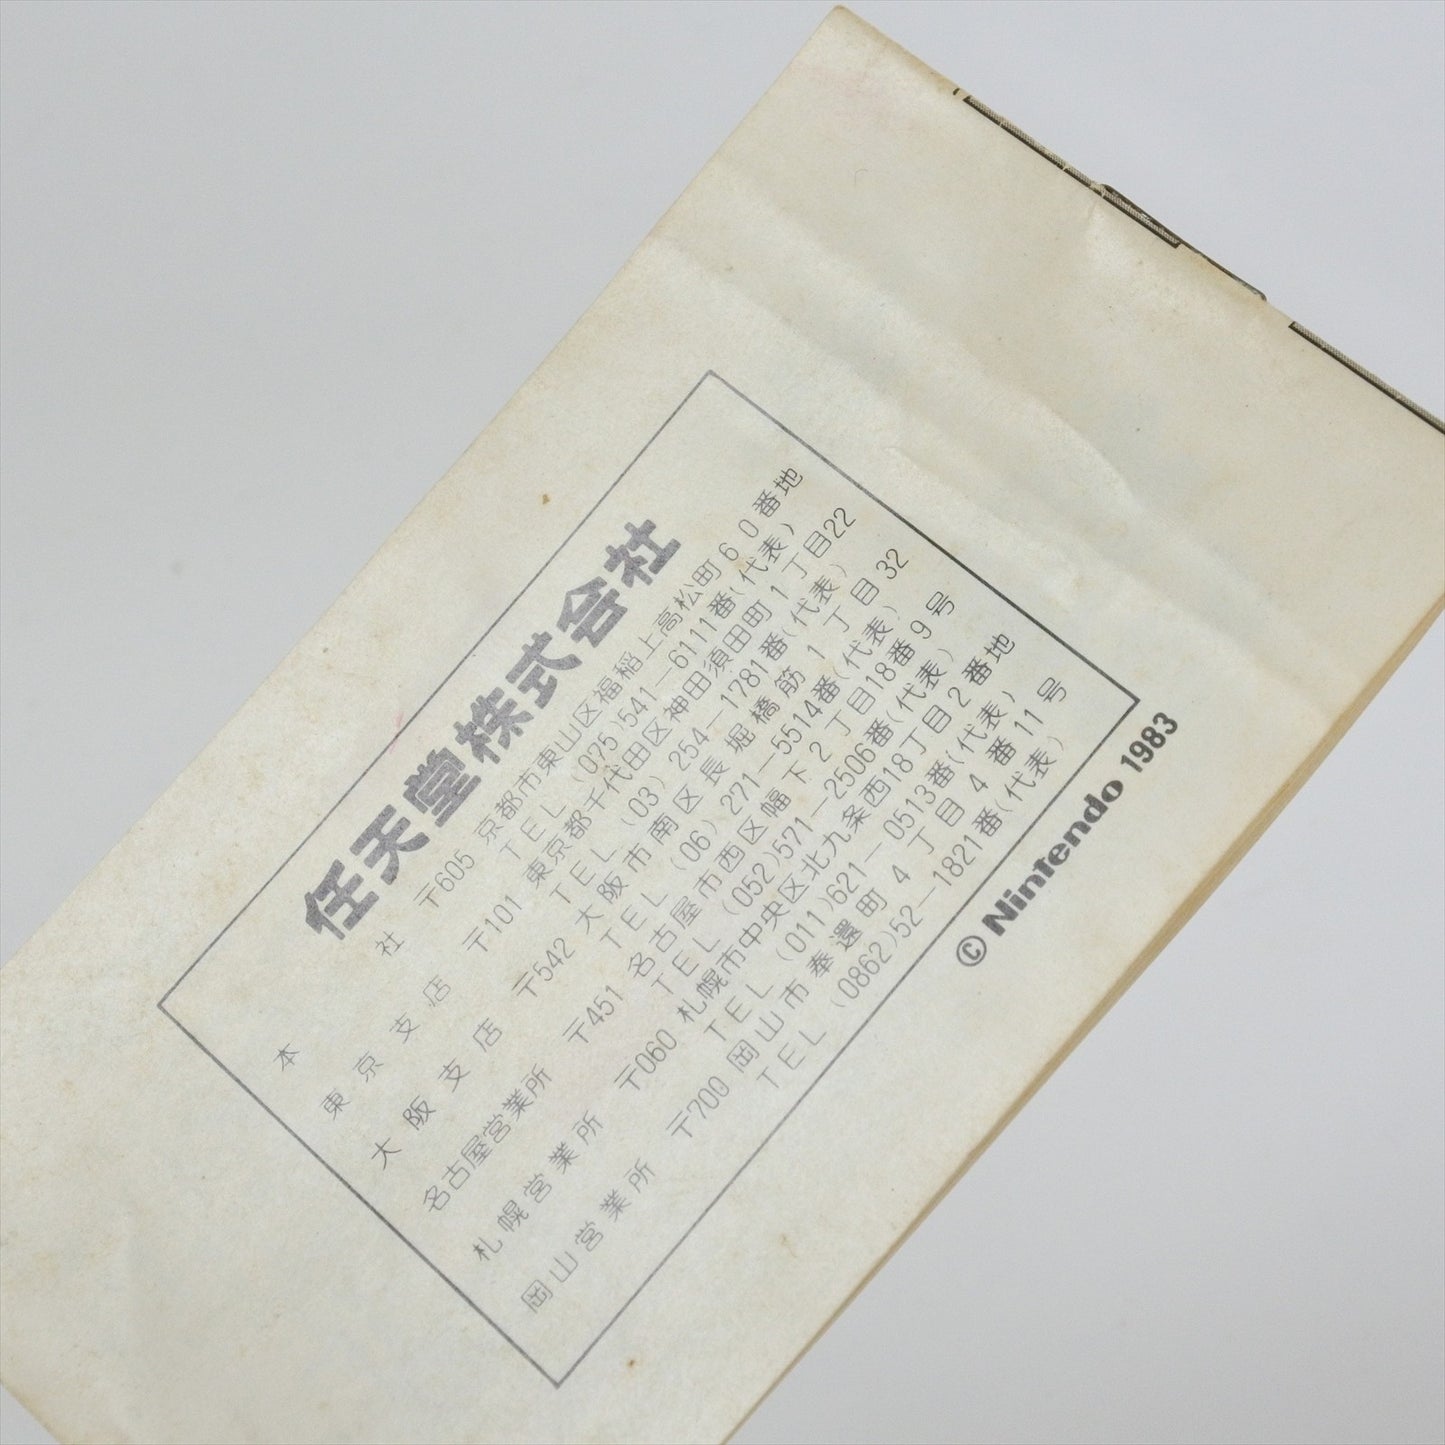 任天堂株式会社
本社 〒605 京都市東山区福稲上高松町60番地
TEL (075)541－6111番(代表)
東京支店 〒101 東京都千代田区神田須田町1丁目22
TEL (03) 254－1781番(代表)
大阪支店 〒542 大阪市南区長堀橋筋1丁目32
TEL (06) 271－5514番(代表)
名古屋営業所 〒451 名古屋市西区幅下2丁目18番9号
TEL (052)571－2506番(代表)
札幌営業所 〒060 札幌市中央区北九条西18丁目2番地
TEL (011)621－0513番(代表)
岡山営業所 〒700 岡山市奉還町4丁目4番11号
TEL (0862)52－1821番(代表)
© Nintendo 1983